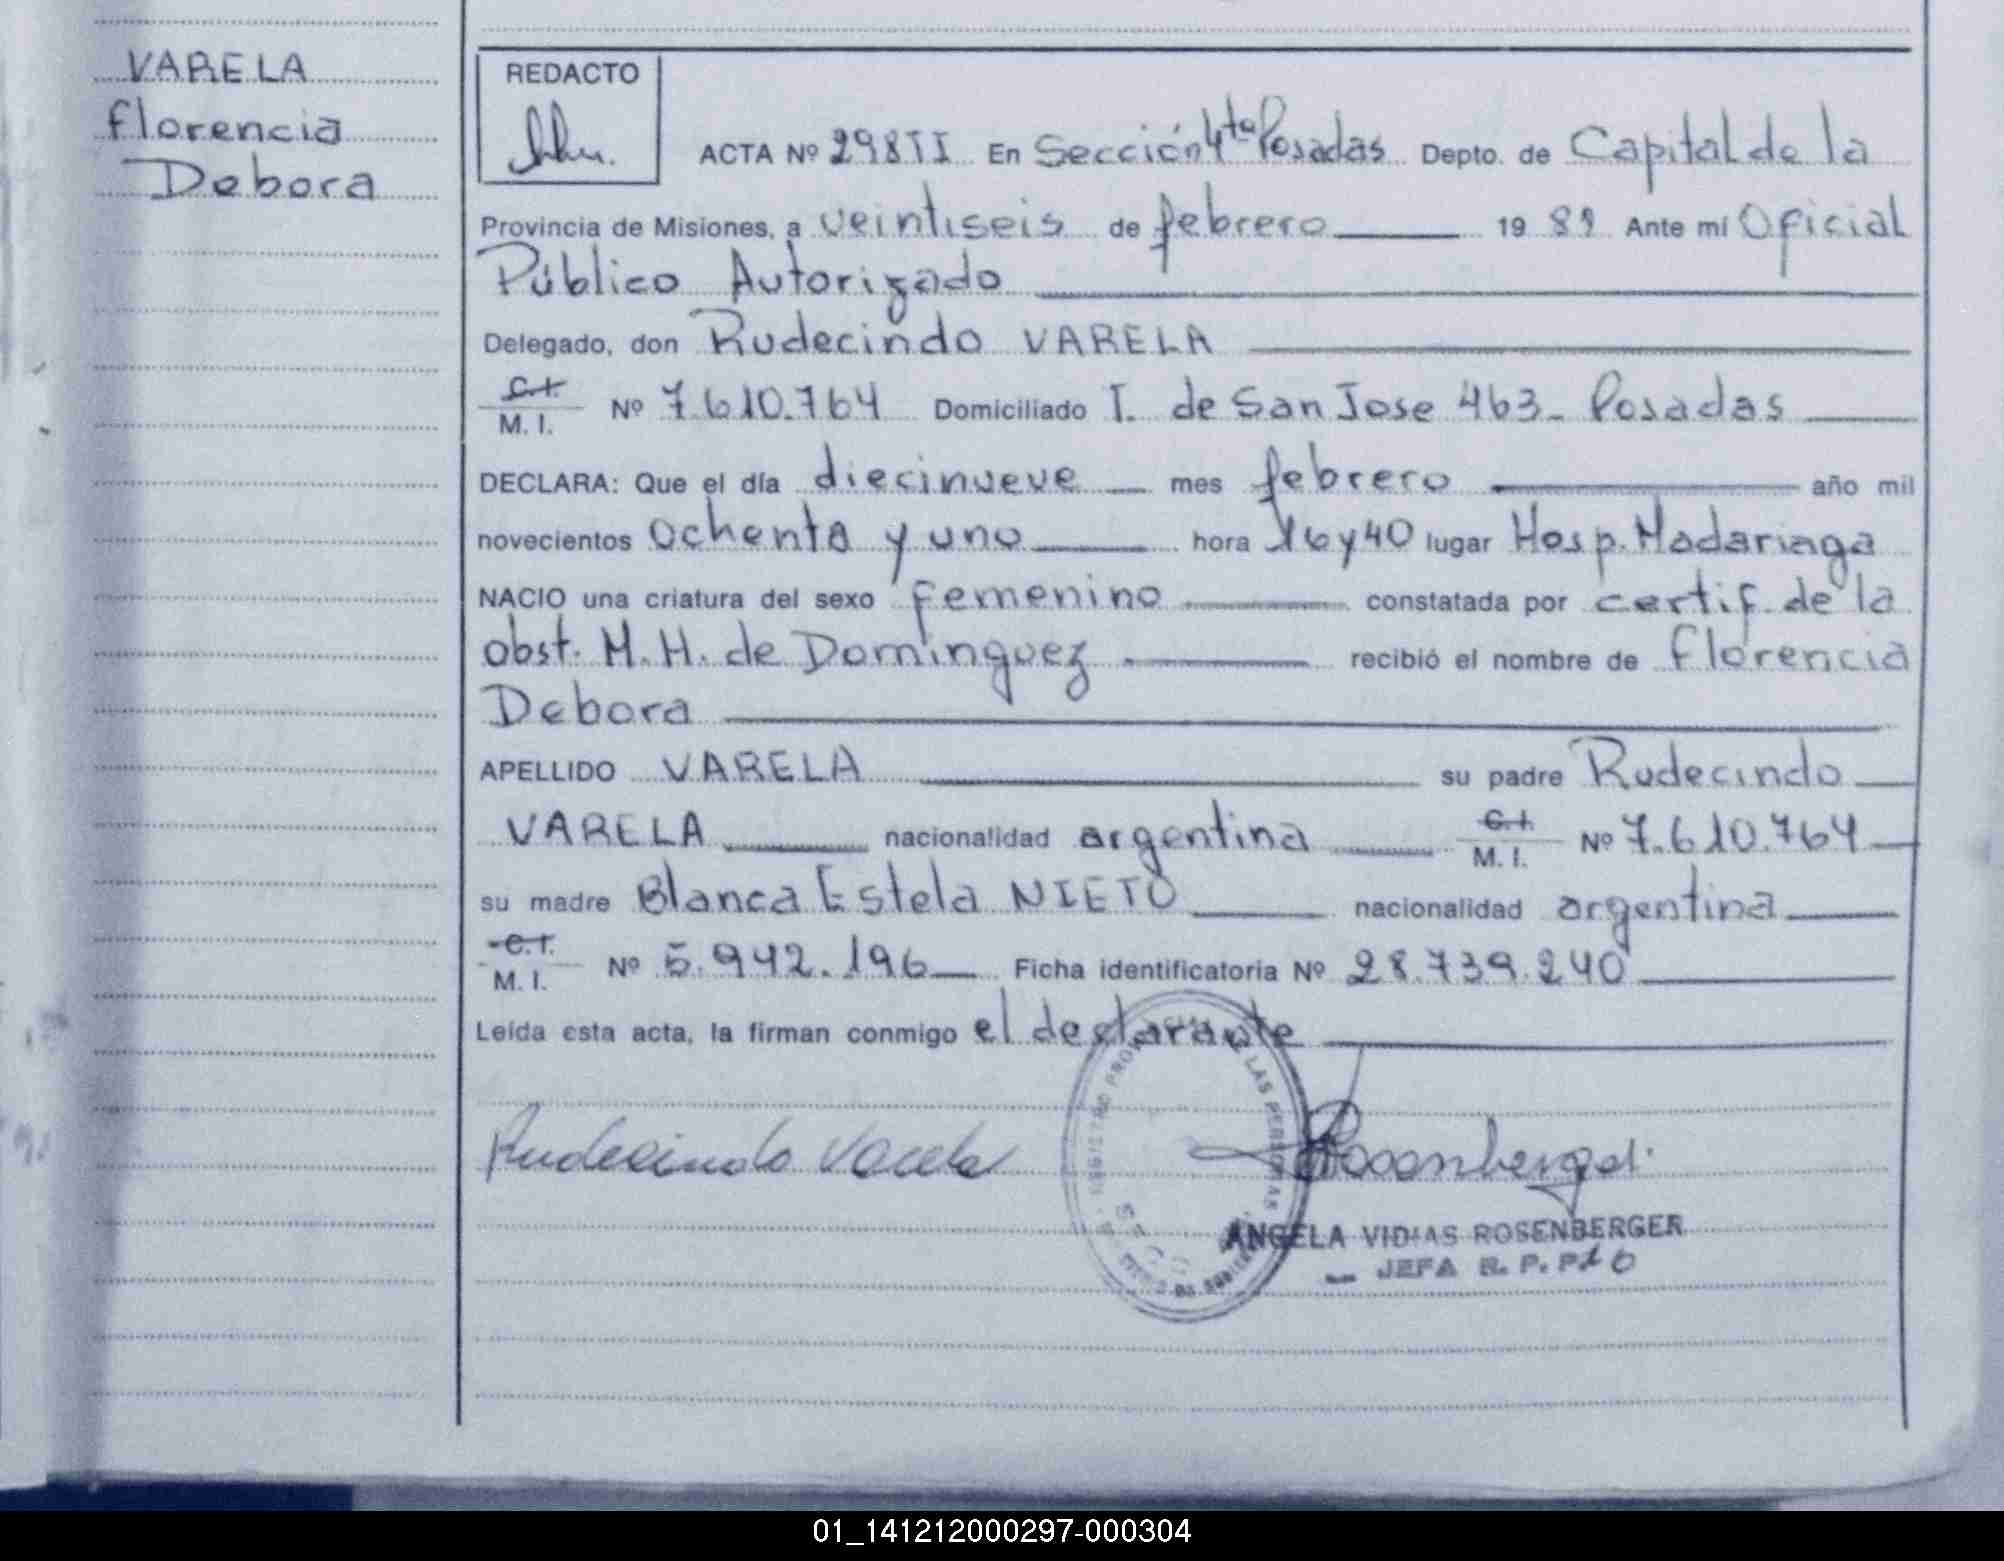 VARELA
Florencia
Debora
REDACTO
ACTA Nº 298 II En Sección 4ta Posadas Depto. de Capital de la
Provincia de Misiones, a veintiseis de febrero 19 81 Ante mí Oficial
Público Autorizado
Delegado, don Rudecindo VARELA
C.I.
M. I. Nº 7.610.764 Domiciliado I. de San Jose 463- Posadas
DECLARA: Que el día diecinueve mes febrero año mil
novecientos ochenta y uno hora 16 y 40 lugar Hosp. Madariaga
NACIO una criatura del sexo femenino constatada por certif. de la
obst. M. H. de Dominguez recibió el nombre de Florencia
Debora
APELLIDO VARELA su padre Rudecindo
VARELA nacionalidad argentina C.I. M. I. Nº 7.610.764
su madre Blanca Estela NIETO nacionalidad argentina
C.I.
M. I. Nº 5.942.196 Ficha identificatoria Nº 28.739.240
Leída esta acta, la firman conmigo el declarante
LAS PERSONAS
Rudecindo Varela
Rosenberger
ANGELA VIDIAS ROSENBERGER
JEFA R. P. P
01_141212000297-000304